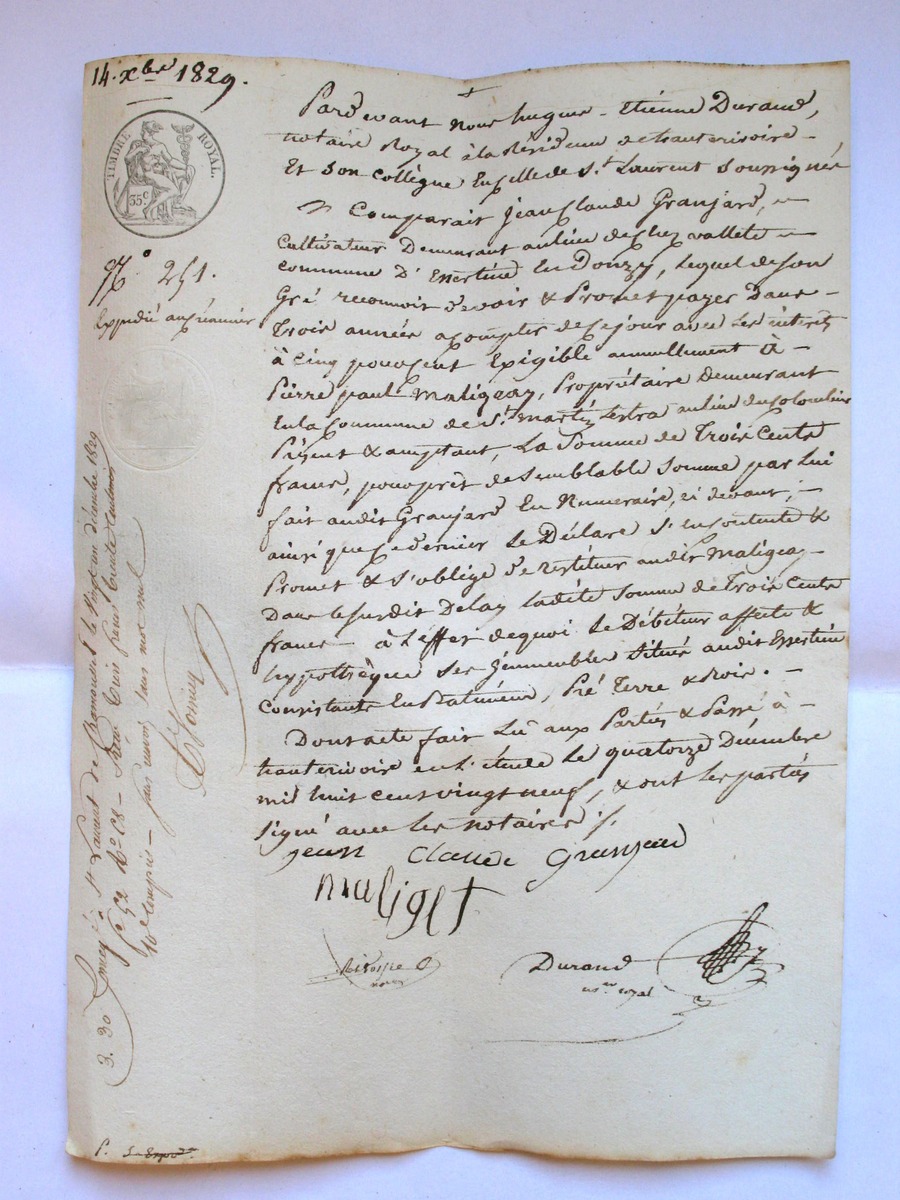 14. Xbre 1829.
TIMBRE ROYAL.
35.c
No 251.
Expédié au créancier
Pardevant Nous hugue-Etiénne Durand,
notaire Royal à la Résidence de hauterivoire
Et Son Collègue En celle de St. Laurent Soussignés
Comparait Jean Claude Granjard,
Cultivateur Demeurant au lieu de chez vallete
commune D'Essertine En Donzy, lequel de Son
Gré reconnoit devoir & Promet payer Dans
Trois années a compter de Ce jour avec les interets
à Cinq pour cent Exigible annullement à
Pierre paul Maligeay, Propriétaire demeurant
En la Commune de St. Martin Lestra au lieu du Colombier
Présent & acceptant, La Somme de Trois Cents
francs, pour prêt de Semblable Somme par Lui
fait audit Granjard En Numeraire, ci devant,
ainsi que ce dernier Le Déclare S'en contente &
Promet & S'oblige de restituer audit Maligeay
Dans le Susdit Délay ladite Somme de Trois Cents
francs à l'effet de quoi Le Débiteur affecte &
hypothèque Ses Jmmeubles Situés audit Essertine
Consistants En Batiments, Pré Terre & bois.
Dont acte fait Lû aux Parties & Passé à
hauterivoire en L'étude Le quatorze Décembre
mil huit cent vingt neuf, & ont les parties
Signé avec les notaires ./.
jean Claude Granjard
maliget
Durand
nore royal
3. 30
St Laurent de Chamousset le vingt un décembre 1829
fo 52 Ro C8 Reçu trois francs trente centimes
10e compris